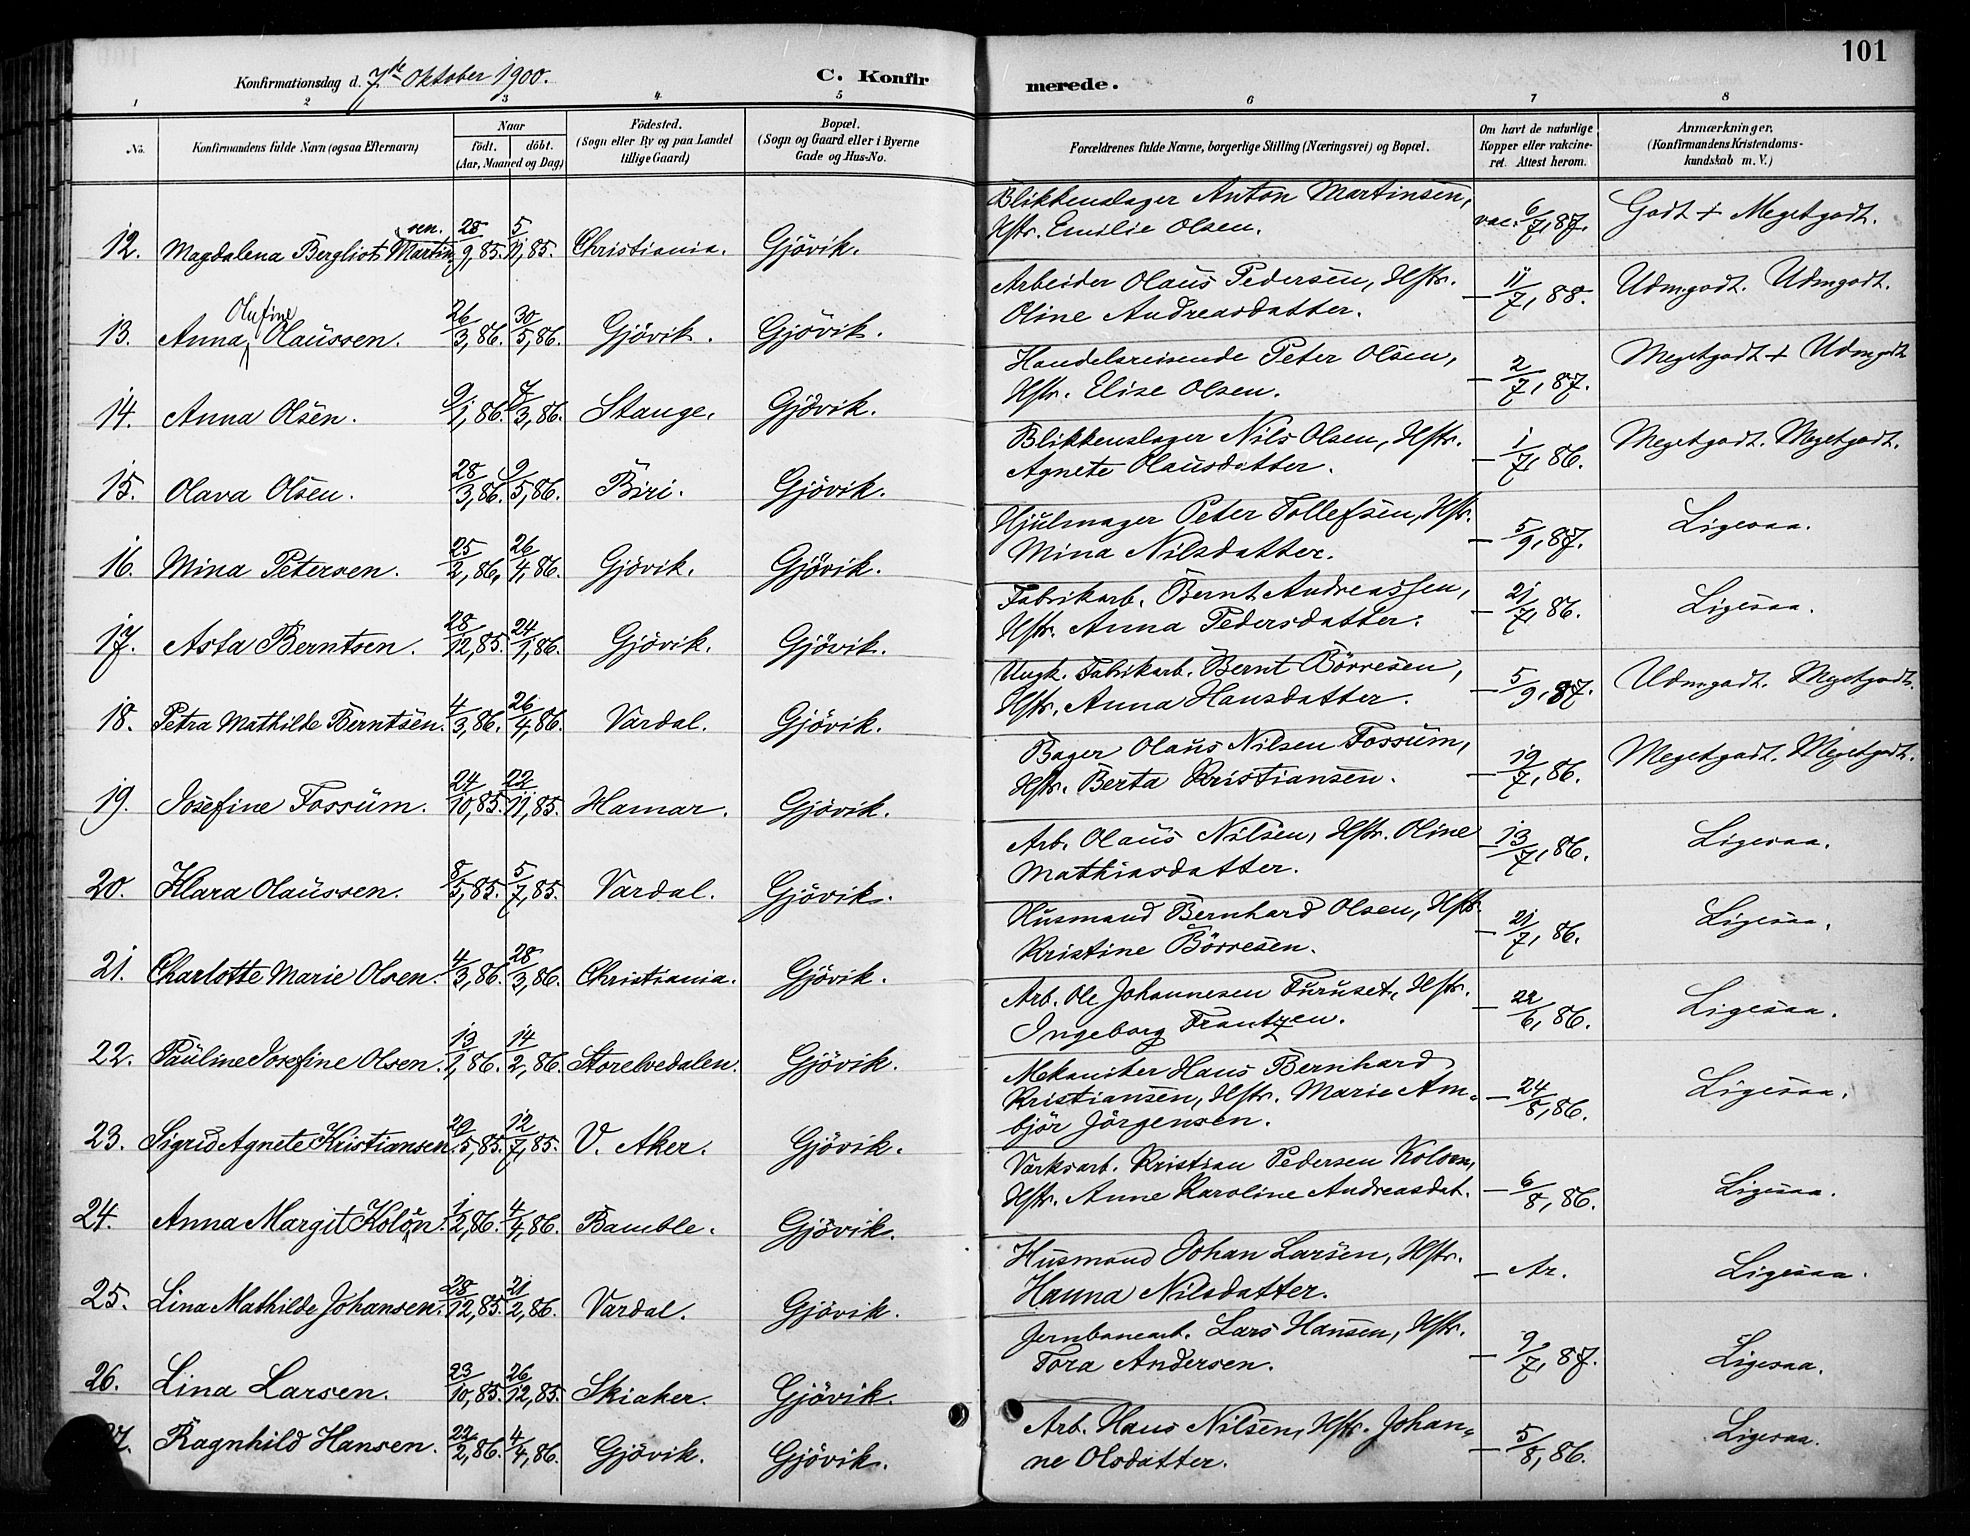 101
Konfirmationsdag d. 7de Oktober 1900.
C. Konfirmerede.
1 2 3 4 5 6 7 8
No. Konfirmandens fulde Navn (ogsaa Efternavn) Naar født. døbt. (Aar, Maaned og Dag) Fødested. (Sogn eller By og paa Landet tillige Gaard) Bopæl. (Sogn og Gaard eller i Byerne Gade og Hus-No. Forældrenes fulde Navne, borgerlige Stilling (Næringsvei) og Bopæl. Om havt de naturlige Kopper eller vakcineret. Attest herom. Anmærkninger. (Konfirmandens Kristendomskundskab m. V.)
12. Magdalena Bergliot Martinsen 28/9, 85. 5/11, 85. Christiania. Gjövik. Blikkenslager Anton Martinsen, Hstr. Emilie Olsen. vac. 6/7, 87. Godt + Megetgodt.
13. Anna Olufine Olaussen. 26/3, 86. 30/5, 86. Gjövik. Gjövik. Arbeider Olaus Pedersen, Hstr. Oline Andreasdatter. — 11/7, 88. Udmgodt. Udmgodt.
14. Anna Olsen. 9/1, 86. 7/3, 86. Stange. Gjövik. Handelsreisende Peter Olsen, Hstr. Elise Olsen. — 2/7, 87. Megetgodt + Udmgodt
15. Olava Olsen. 28/3, 86. 9/5, 86. Biri. Gjövik. Blikkenslager Nils Olsen, Hstr. Agnete Olausdatter. — 1/7, 86. Megetgodt. Megetgodt.
16. Mina Petersen. 25/2, 86. 26/4, 86. Gjövik. Gjövik. Hjulmager Peter Tollefsen, Hstr. Mina Nilsdatter. — 5/9, 87. Ligesaa.
17. Asta Berntsen. 28/12, 85. 24/1, 86. Gjövik. Gjövik. Fabrikarb. Bernt Andreassen, Hstr. Anna Pedersdatter. — 21/7, 86. Ligesaa.
18. Petra Mathilde Berntsen. 4/3, 86. 26/4, 86. Vardal. Gjövik. Ungk. Fabrikarb. Bernt Börresen, Hstr. Anna Hansdatter. — 5/9, 87. Udmgodt. Megetgodt.
19. Josefine Fossum. 24/10, 85. 22/11, 85. Hamar. Gjövik. Bager Olaus Nilsen Fossum, Hstr. Berta Kristiansen. — 19/7, 86. Megetgodt. Megetgodt.
20. Klara Olaussen. 8/5, 85. 5/7, 85. Vardal. Gjövik. Arb. Olaus Nilsen, Hstr. Oline Mathiasdatter. — 13/7, 86. Ligesaa.
21. Charlotte Marie Olsen. 4/3, 86. 28/3, 86. Christiania. Gjövik. Husmand Bernhard Olsen, Hstr. Kristine Börresen. — 21/7, 86. Ligesaa.
22. Pauline Josefine Olsen. 13/1, 86. 14/2, 86. Storelvedalen. Gjövik. Arb. Ole Johannesen Furuset, Hstr. Ingeborg Frantzen. — 22/6, 86. Ligesaa.
23. Sigrid Agnete Kristiansen. 29/5, 85. 12/7, 85. V. Aker. Gjövik. Mekaniker Hans Bernhard Kristiansen, Hstr. Marie Ambjör Jörgensen. — 24/8, 86. Ligesaa.
24. Anna Margit Kolöen. 1/2, 86. 4/4, 86. Bamble. Gjövik. Værksarb. Kristian Pedersen Koloen, Hstr. Anne Karoline Andreasdat. — 6/8, 86. Ligesaa.
25. Lina Mathilde Johansen. 28/12, 85. 21/2, 86. Vardal. Gjövik. Husmand Johan Larsen, Hstr. Hanna Nilsdatter. — Ar. Ligesaa.
26. Lina Larsen. 23/10, 85. 26/12, 85. Skiaker. Gjövik. Jernbanearb. Lars Hansen, Hstr. Tora Andersen. — 9/7, 87. Ligesaa.
7. Ragnhild Hansen. 22/2, 86. 4/4, 86. Gjövik. Gjövik. Arb. Hans Nilsen, Hstr. Johanne Olsdatter. — 5/8, 86. Ligesaa.